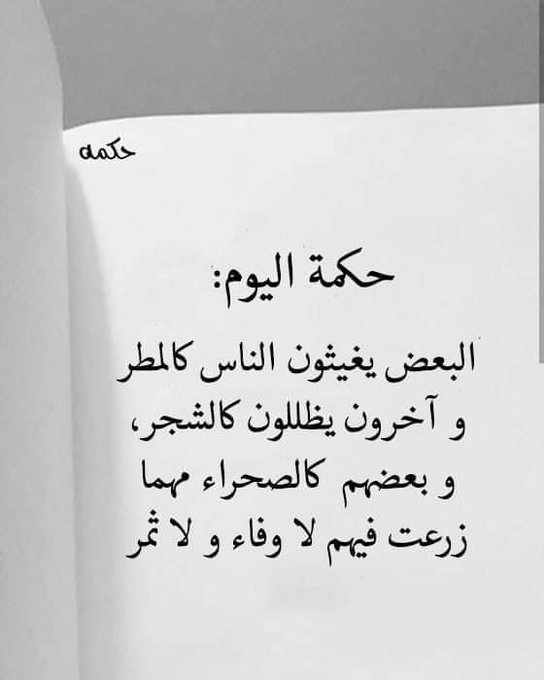 حكمه
حكمة اليوم:
البعض يغيثون الناس كالمطر
و آخرون يظللون كالشجر،
و بعضهم كالصحراء مهما
زرعت فيهم لا وفاء و لا ثمر